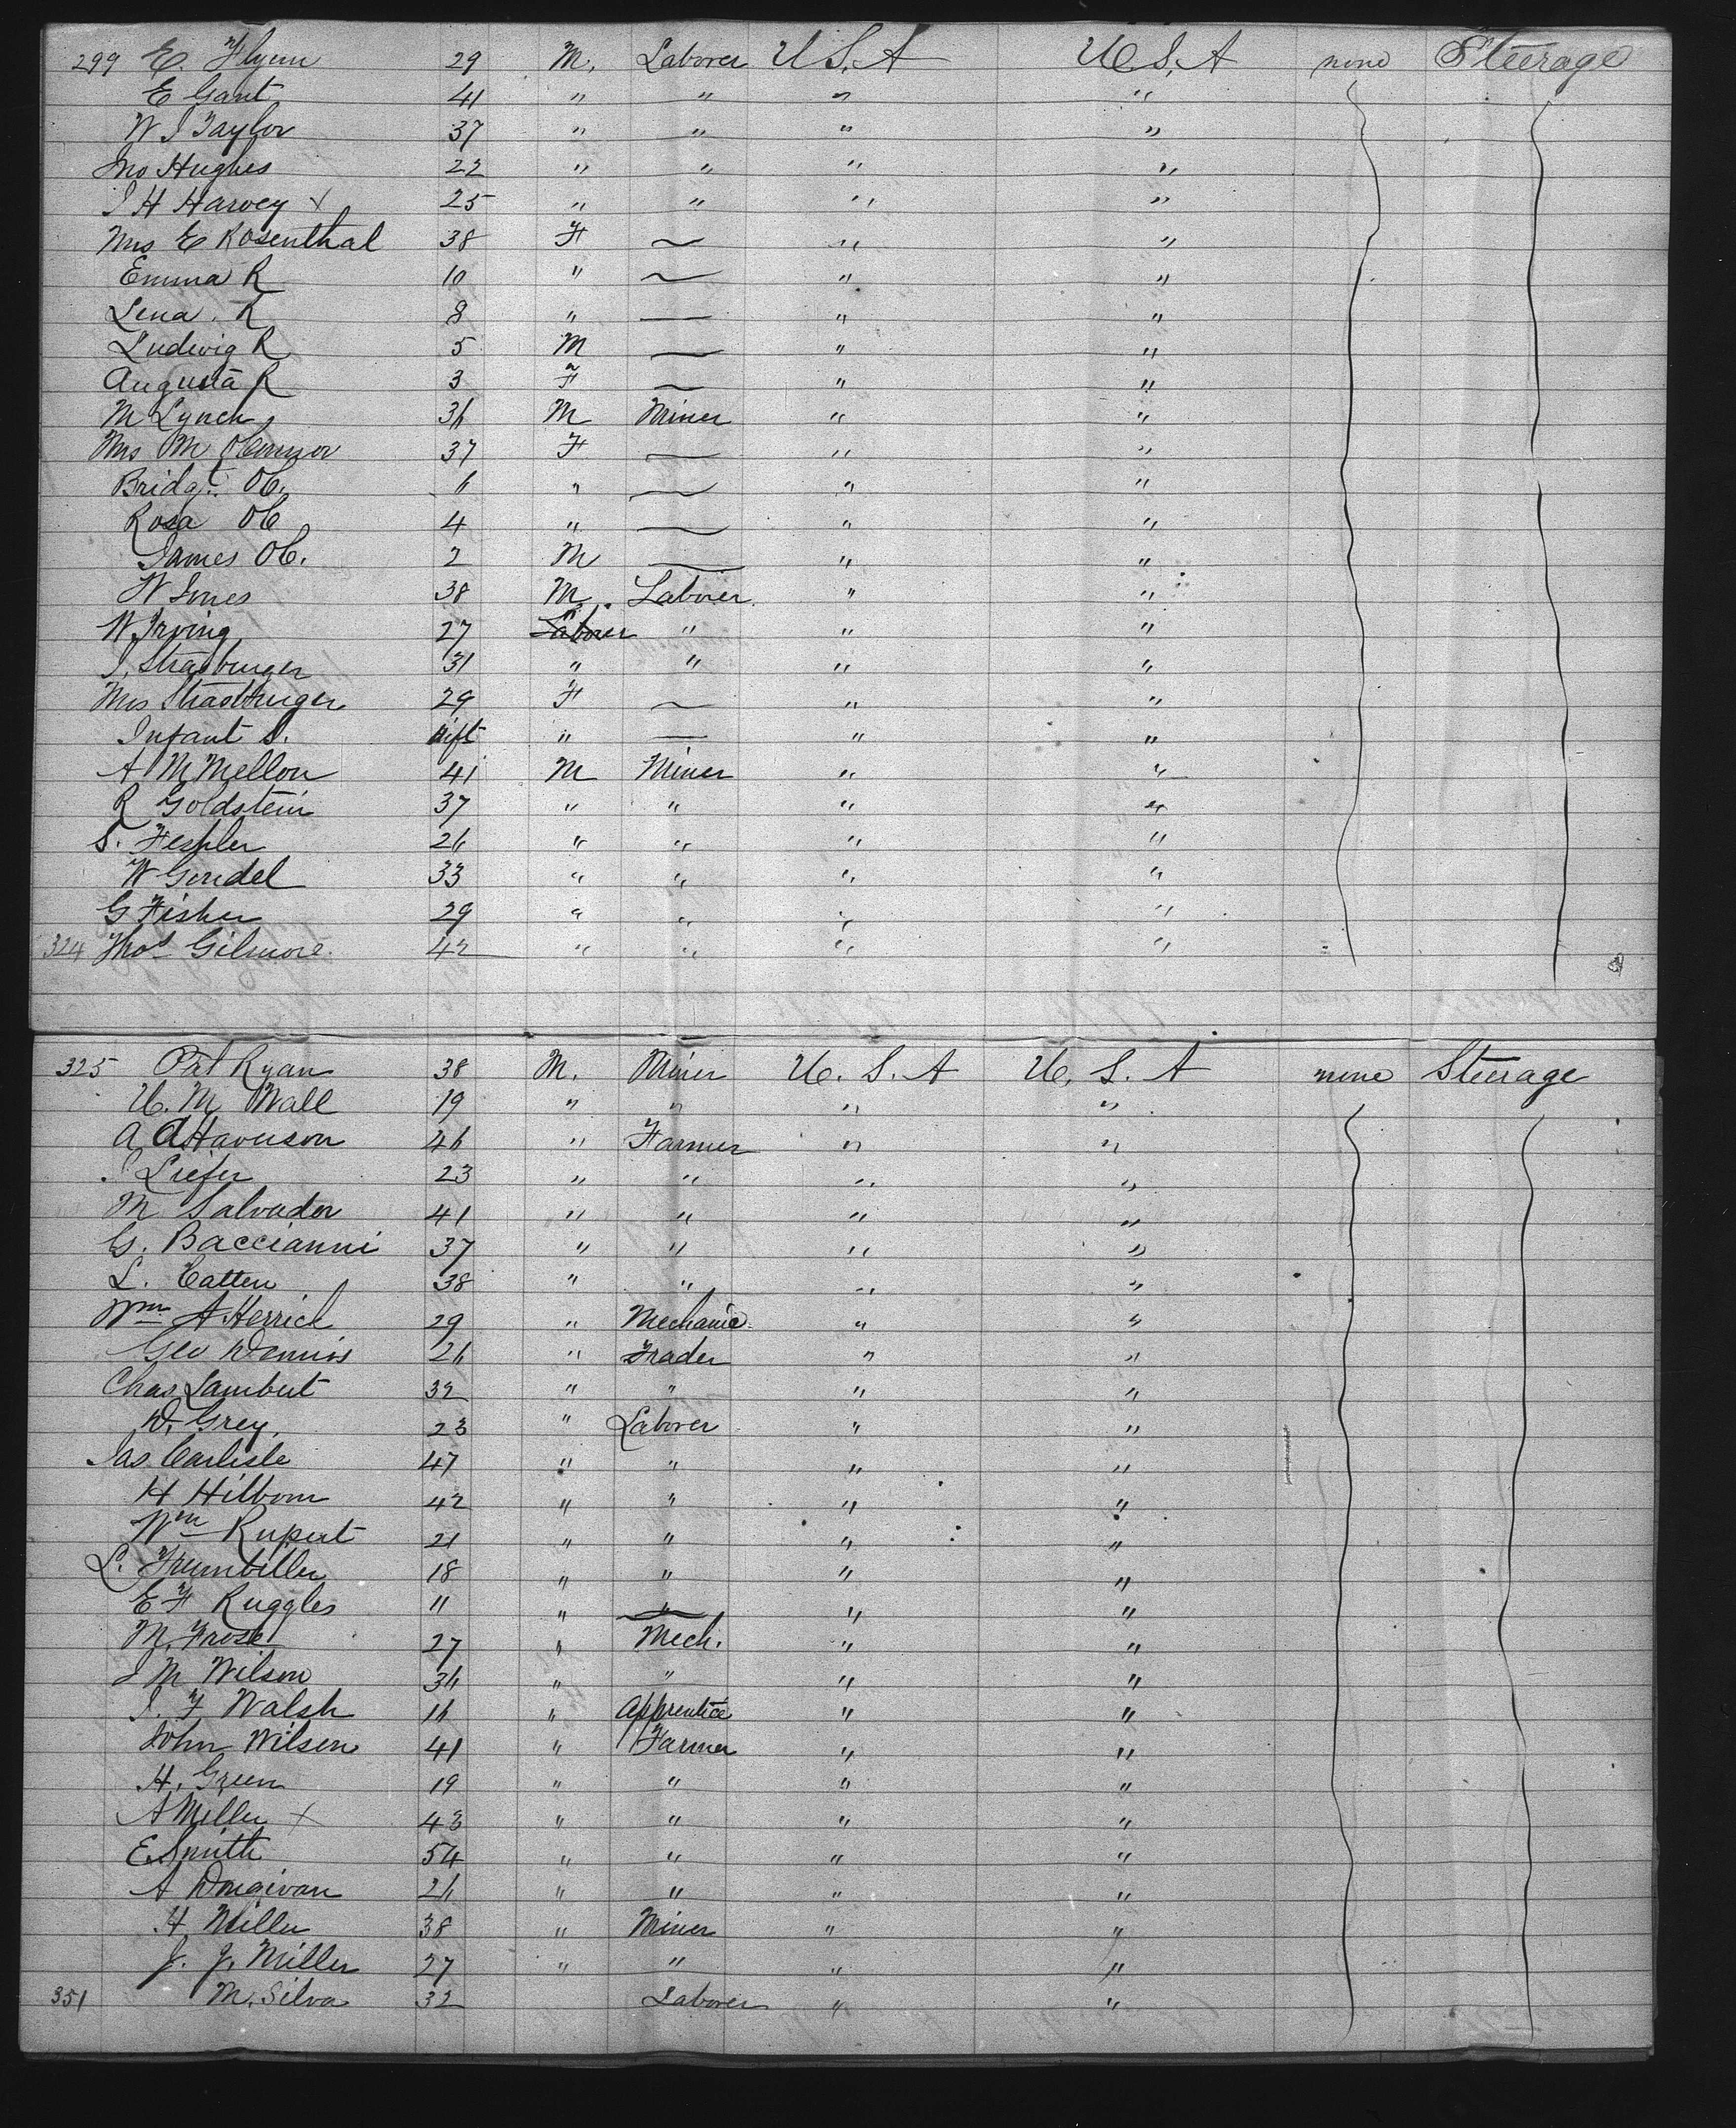 299 E. Flynn 29 M. Laborer U S. A U S. A none Steerage
E Gant 41 " " " "
W J Taylor 37 " " " "
Jno Hughes 22 " " " "
J H Harvey x 25 " " " "
Mrs E Rosenthal 38 F — " "
Emma R 10 " — " "
Lena. R 8 " — " "
Ludwig R 5 M — " "
Augusta R 3 F — " "
M Lynch 36 M Miner " "
Mrs M OConnor 37 F — " "
Bridgt. OC. 6 " — " "
Rosa OC 4 " — " "
James OC. 2 M — " "
W Jones 38 M Laborer " "
W Irving 27 Laborer " " "
J. Strasburger 31 " " " "
Mrs Strasburger 29 F — " "
Infant S. inft " — " "
A McMellon 41 M Miner " "
R Goldstein 37 " " " "
S. Feshler 26 " " " "
W Gendel 33 " " " "
G Fisher 29 " " " "
324 Thos Gilmore. 42 " " " "
325 Pat Ryan 38 M. Miner U. S. A U. S. A none Steerage
U. M Wall 19 " " " "
A A Havenson 46 " Farmer " "
J Liefer 23 " " " "
M Salvador 41 " " " "
G. Baccianni 37 " " " "
L. Catten 38 " " " "
Wm A Herrick 29 " Mechanic " "
Geo Dennis 26 " Trader " "
Chas Lambert 32 " " " "
W. Grey. 23 " Laborer " "
Jas Carlisle 47 " " " "
H Hilborn 42 " " " "
Wm Rupert 21 " " " "
L. 18 " " " "
E F Ruggles 11 " — " "
M. Frost 27 " Mech. " "
J M Wilson 36 " " " "
J. F Walsh 16 " Apprentice " "
John Wilson 41 " Farmer " "
H. Green 19 " " " "
A Miller x 43 " " " "
E. Smith 54 " " " "
A Dongivan 26 " " " "
H. Miller 38 " Miner " "
J. J. Miller 27 " " " "
351 M. Silva 32 Laborer " "